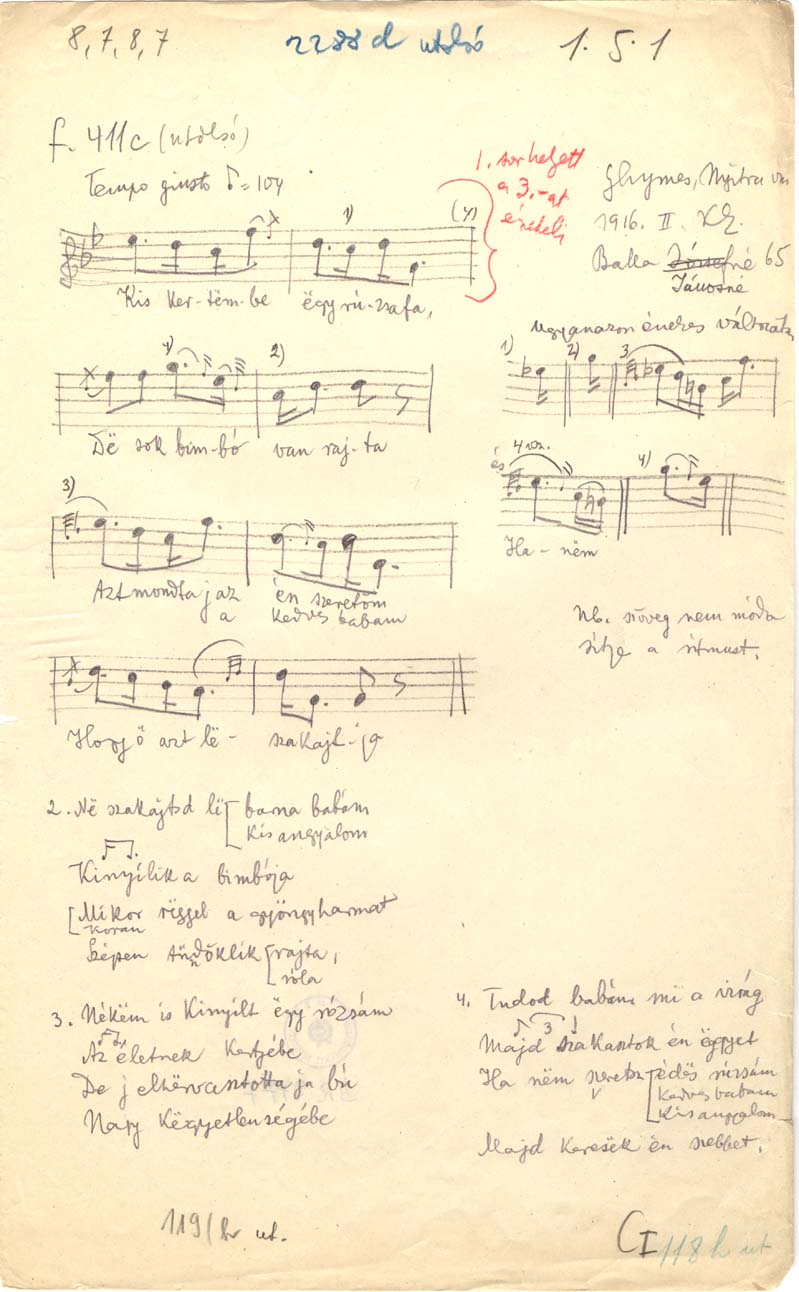 8, 7, 8, 7
2288 d utolsó
1. 5. 1
f. 411c (utolsó)
Tempo giusto = 104
1. sor helyett
a 3.-at
énekeli
Ghymes, Nyitra vm
1916. II.
Balla Józsefné 65
Jánosné
1)
(4)
Kis ker-tëm-be ëgy rú-zsafa,
ugyanazon énekes változatai
1) 2) 3
4) 2)
Dë sok bim-bó van raj-ta
és 4 vsz. 4)
Ha-nëm
3)
Azt mondta j az én szeretőm
a kedves babám
Nb. szöveg nem módo
sítja a ritmust.
Hogy ő azt lë- szakajt-ja
2. Në szakajtsd lë barna babám
Kis angyalom
Kinyílik a bimbója
Mikor réggel a gyöngyharmat
Korán
Szépen tündöklik rajta,
róla
3. Nékëm is kinyílt ëgy rózsám
Az életnek kertyébe
De j elhërvasztotta ja bú
Nagy këgyetlenségébe
4. Tudod babám mi a virág
3
Majd szakasztok én ëggyet
Ha nëm szeretsz édës rúzsám
Kedves babám
Kis angyalom
Majd keresëk én szebbet.
119/ ut.
CI 118 h ut